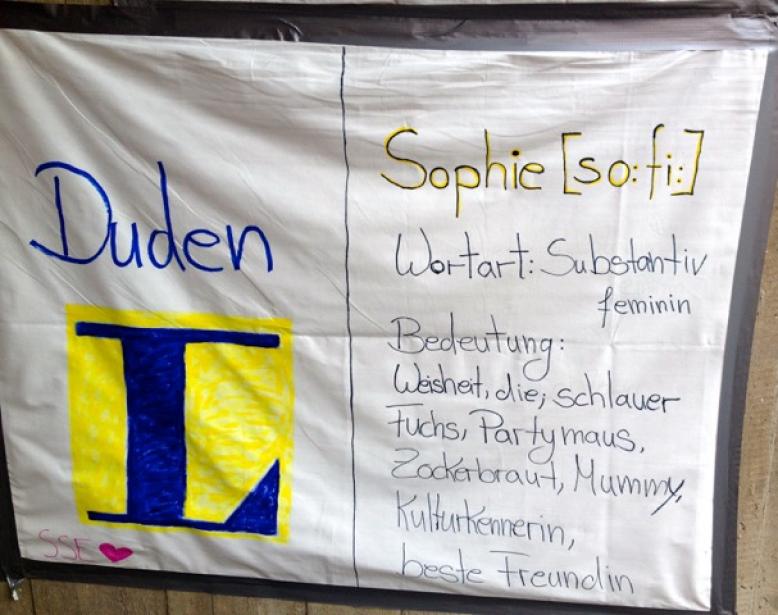 Duden
L
SSF
Sophie [so:fi:]
Wortart: Substantiv
feminin
Bedeutung:
Weisheit, die; schlauer
Fuchs, Partymaus,
Zockerbraut, Mummy,
Kulturkennerin,
beste Freundin